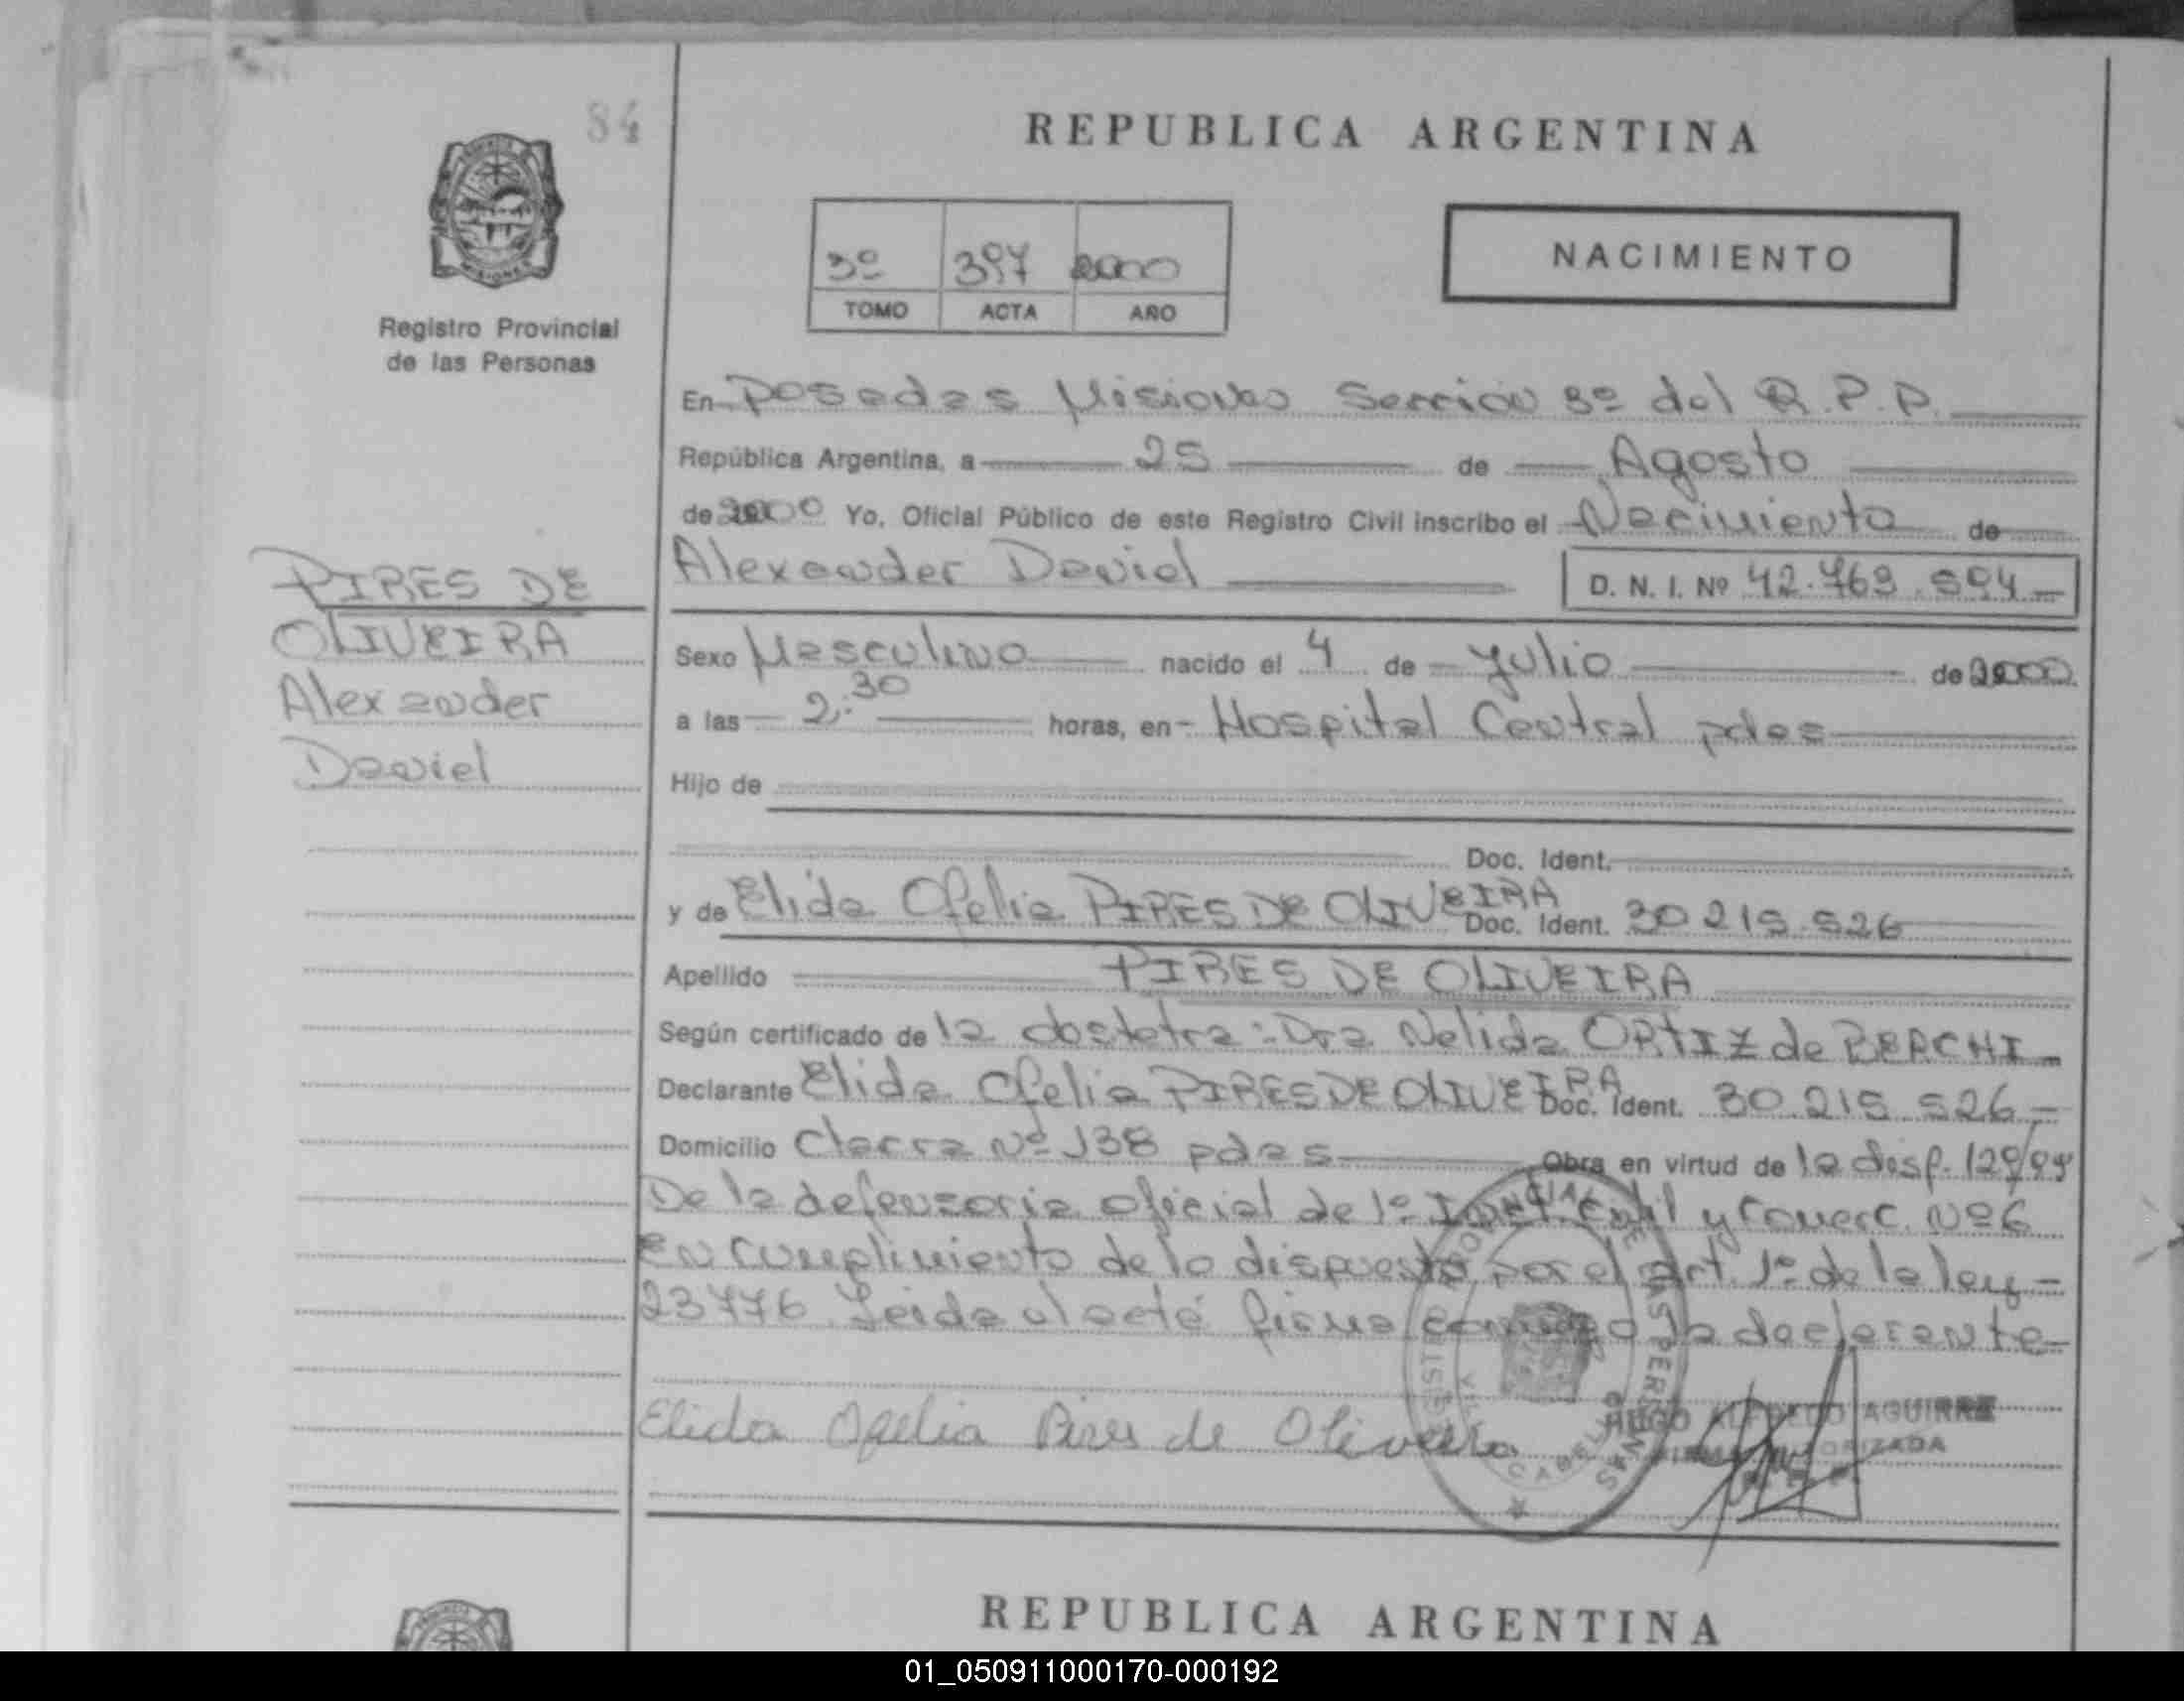 84
REPUBLICA ARGENTINA
3º 397 2000
TOMO ACTA AÑO
NACIMIENTO
Registro Provincial
de las Personas
En Posadas Misiones Sección 3º del R.P.P.
República Argentina, a 25 de Agosto
de 2000 Yo, Oficial Público de este Registro Civil inscribo el Nacimiento de
Alexander Daniel D. N. I. Nº 42.769.594
PIRES DE
OLIVEIRA
Alexander
Daniel
Sexo Masculino nacido el 4 de Julio de 2000
a las 2:30 horas, en Hospital Central pdas
Hijo de
Doc. Ident.
y de Elida Ofelia PIRES DE OLIVEIRA Doc. Ident. 30 215.526
Apellido PIRES DE OLIVEIRA
Según certificado de la obstetra: Dra Nelida ORTIZ de BERCHI
Declarante Elida Ofelia PIRES DE OLIVEIRA Doc. Ident. 30.215.526
Domicilio Chacra Nº 138 pdas Obra en virtud de la disp. 129/
De la defensoria oficial de 1º Inst. Civil y Comerc. Nº 6
En cumplimiento de lo dispuesto por el Art. 1º de la ley
23776 Leida el acta firma conmigo la declarante
Elida Ofelia Pires de Oliveira
HUGO ALFREDO AGUIRRE
FIRMA AUTORIZADA
REPUBLICA ARGENTINA
01_050911000170-000192